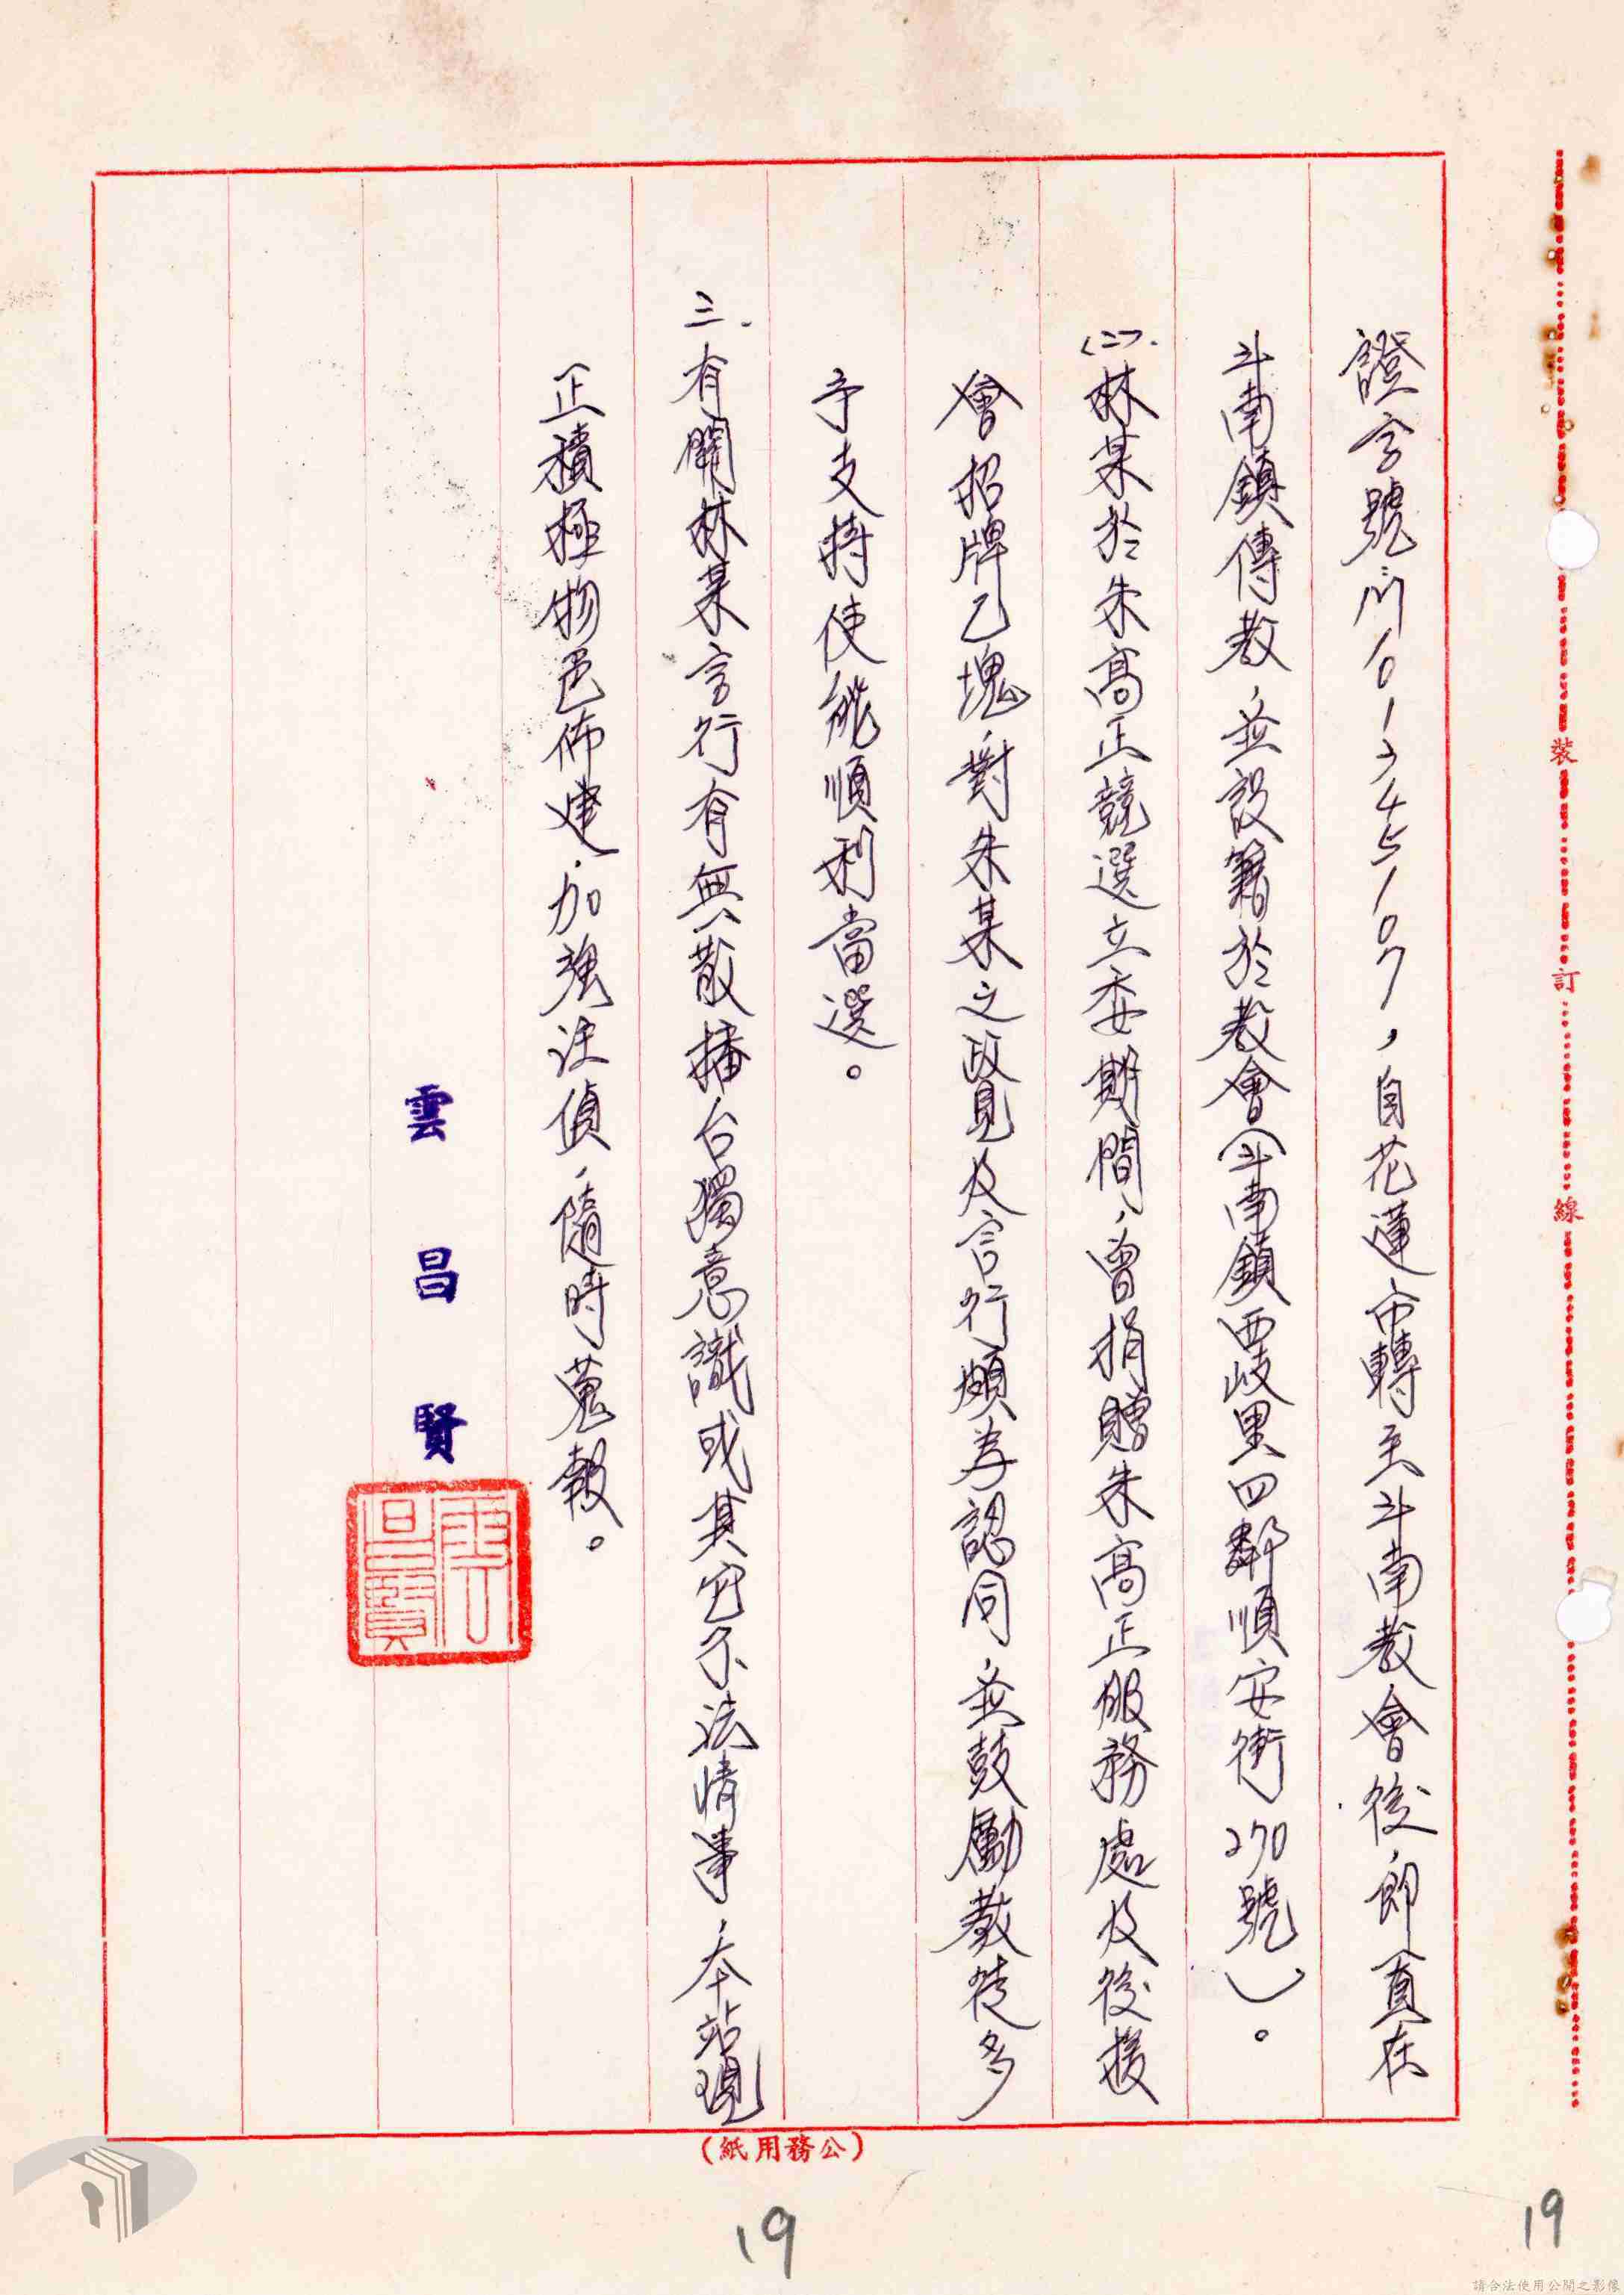 證字號:川101245107，自花蓮市轉至斗南教會後，即一直在
斗南鎮傳教，並設籍於教會（斗南鎮西岐里四鄰順安街270號）。
(二).林某於朱高正競選立委期間，曾捐贈朱高正服務處及後援
會招牌乙塊，對朱某之政見及言行頗為認同，並鼓勵教徒多
予支持使能順利當選。
三.有關林某言行有無散播台獨意識或其它不法情事，本站現
正積極物色佈建，加強注偵，隨時蒐報。
雲昌賢
裝
訂
線
（公務用紙）
19
19
請合法使用公開之影像